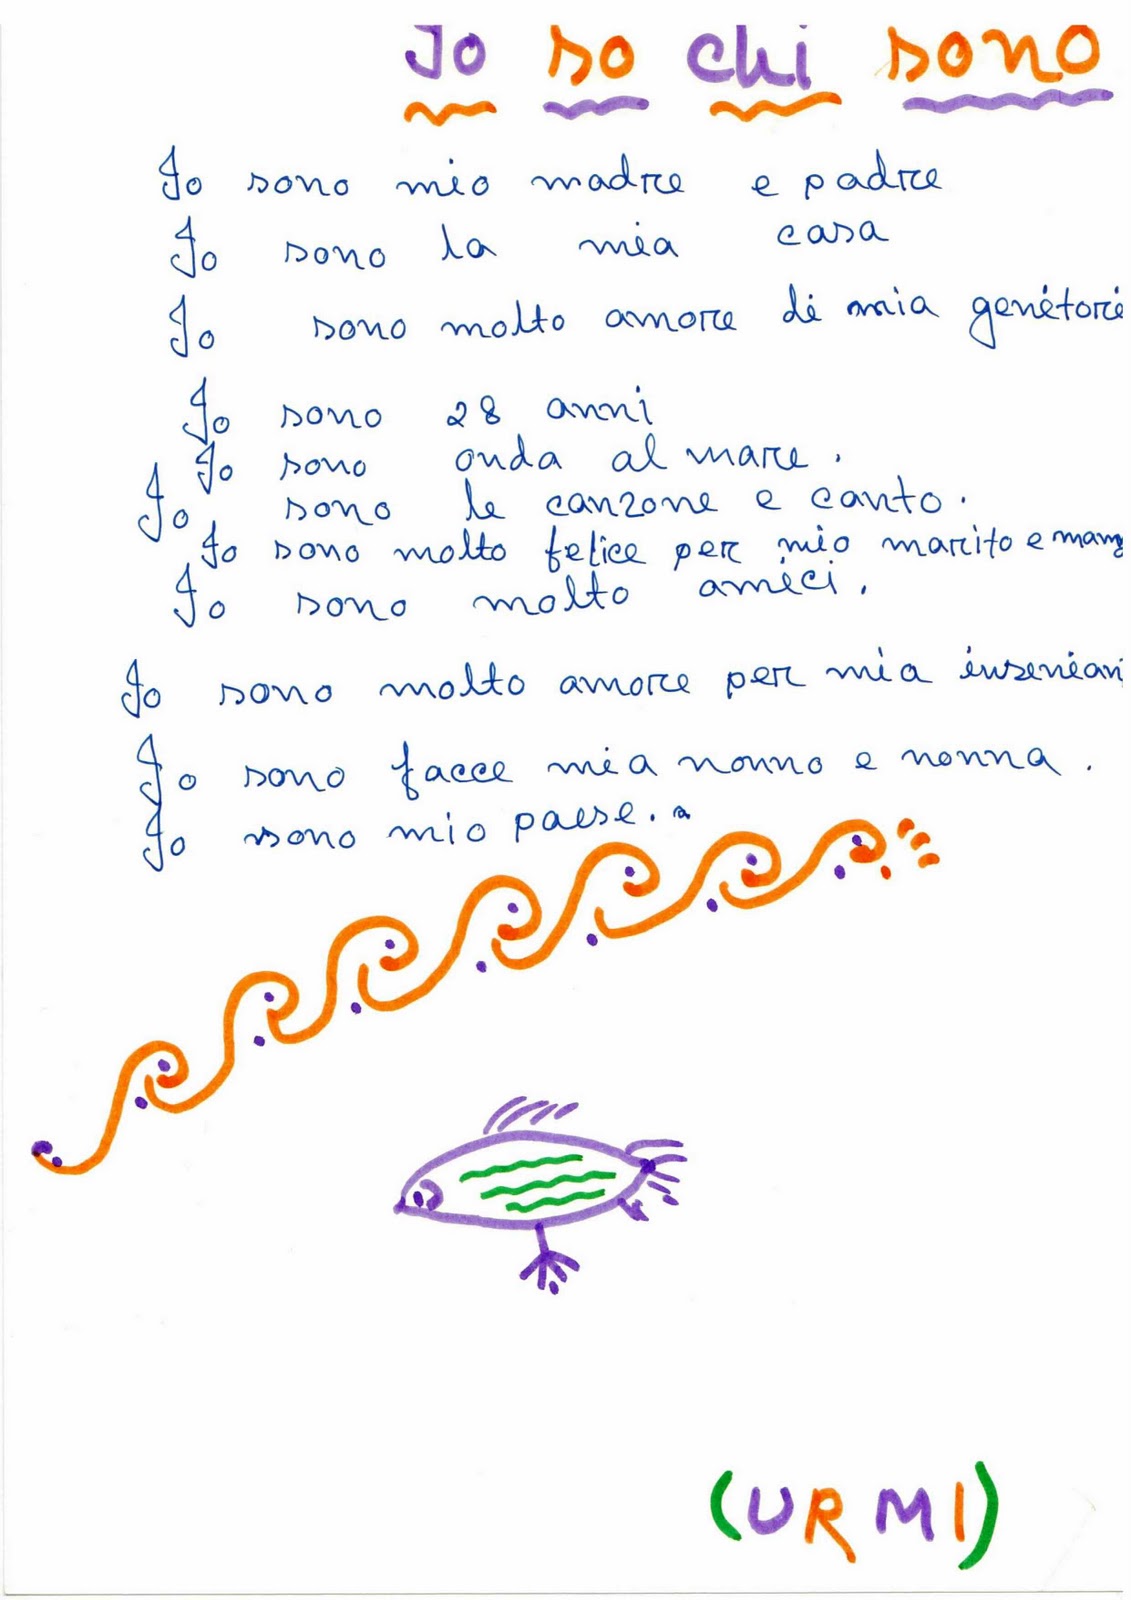 Io so chi sono
Io sono mio madre e padre
Io sono la mia casa
Io sono molto amore di mia genitori
Io sono 28 anni
Io sono onda al mare.
Io sono le canzone e canto.
Io sono molto felice per mio marito e
Io sono molto amici.
Io sono molto amore per mia
Io sono facce mia nonno e nonna.
Io sono mio paese.
(URMI)